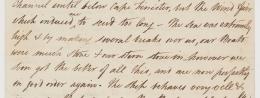 Channel until below Cape Frenister, but the Wind being
which induced, to reef too long - The Sea was extremely
high & by making several breaks over us, our Boats
were much stove & our stern stove in. However we
soon got the better of all this, and are now perfectly
in good order again. The ship behaves very well &